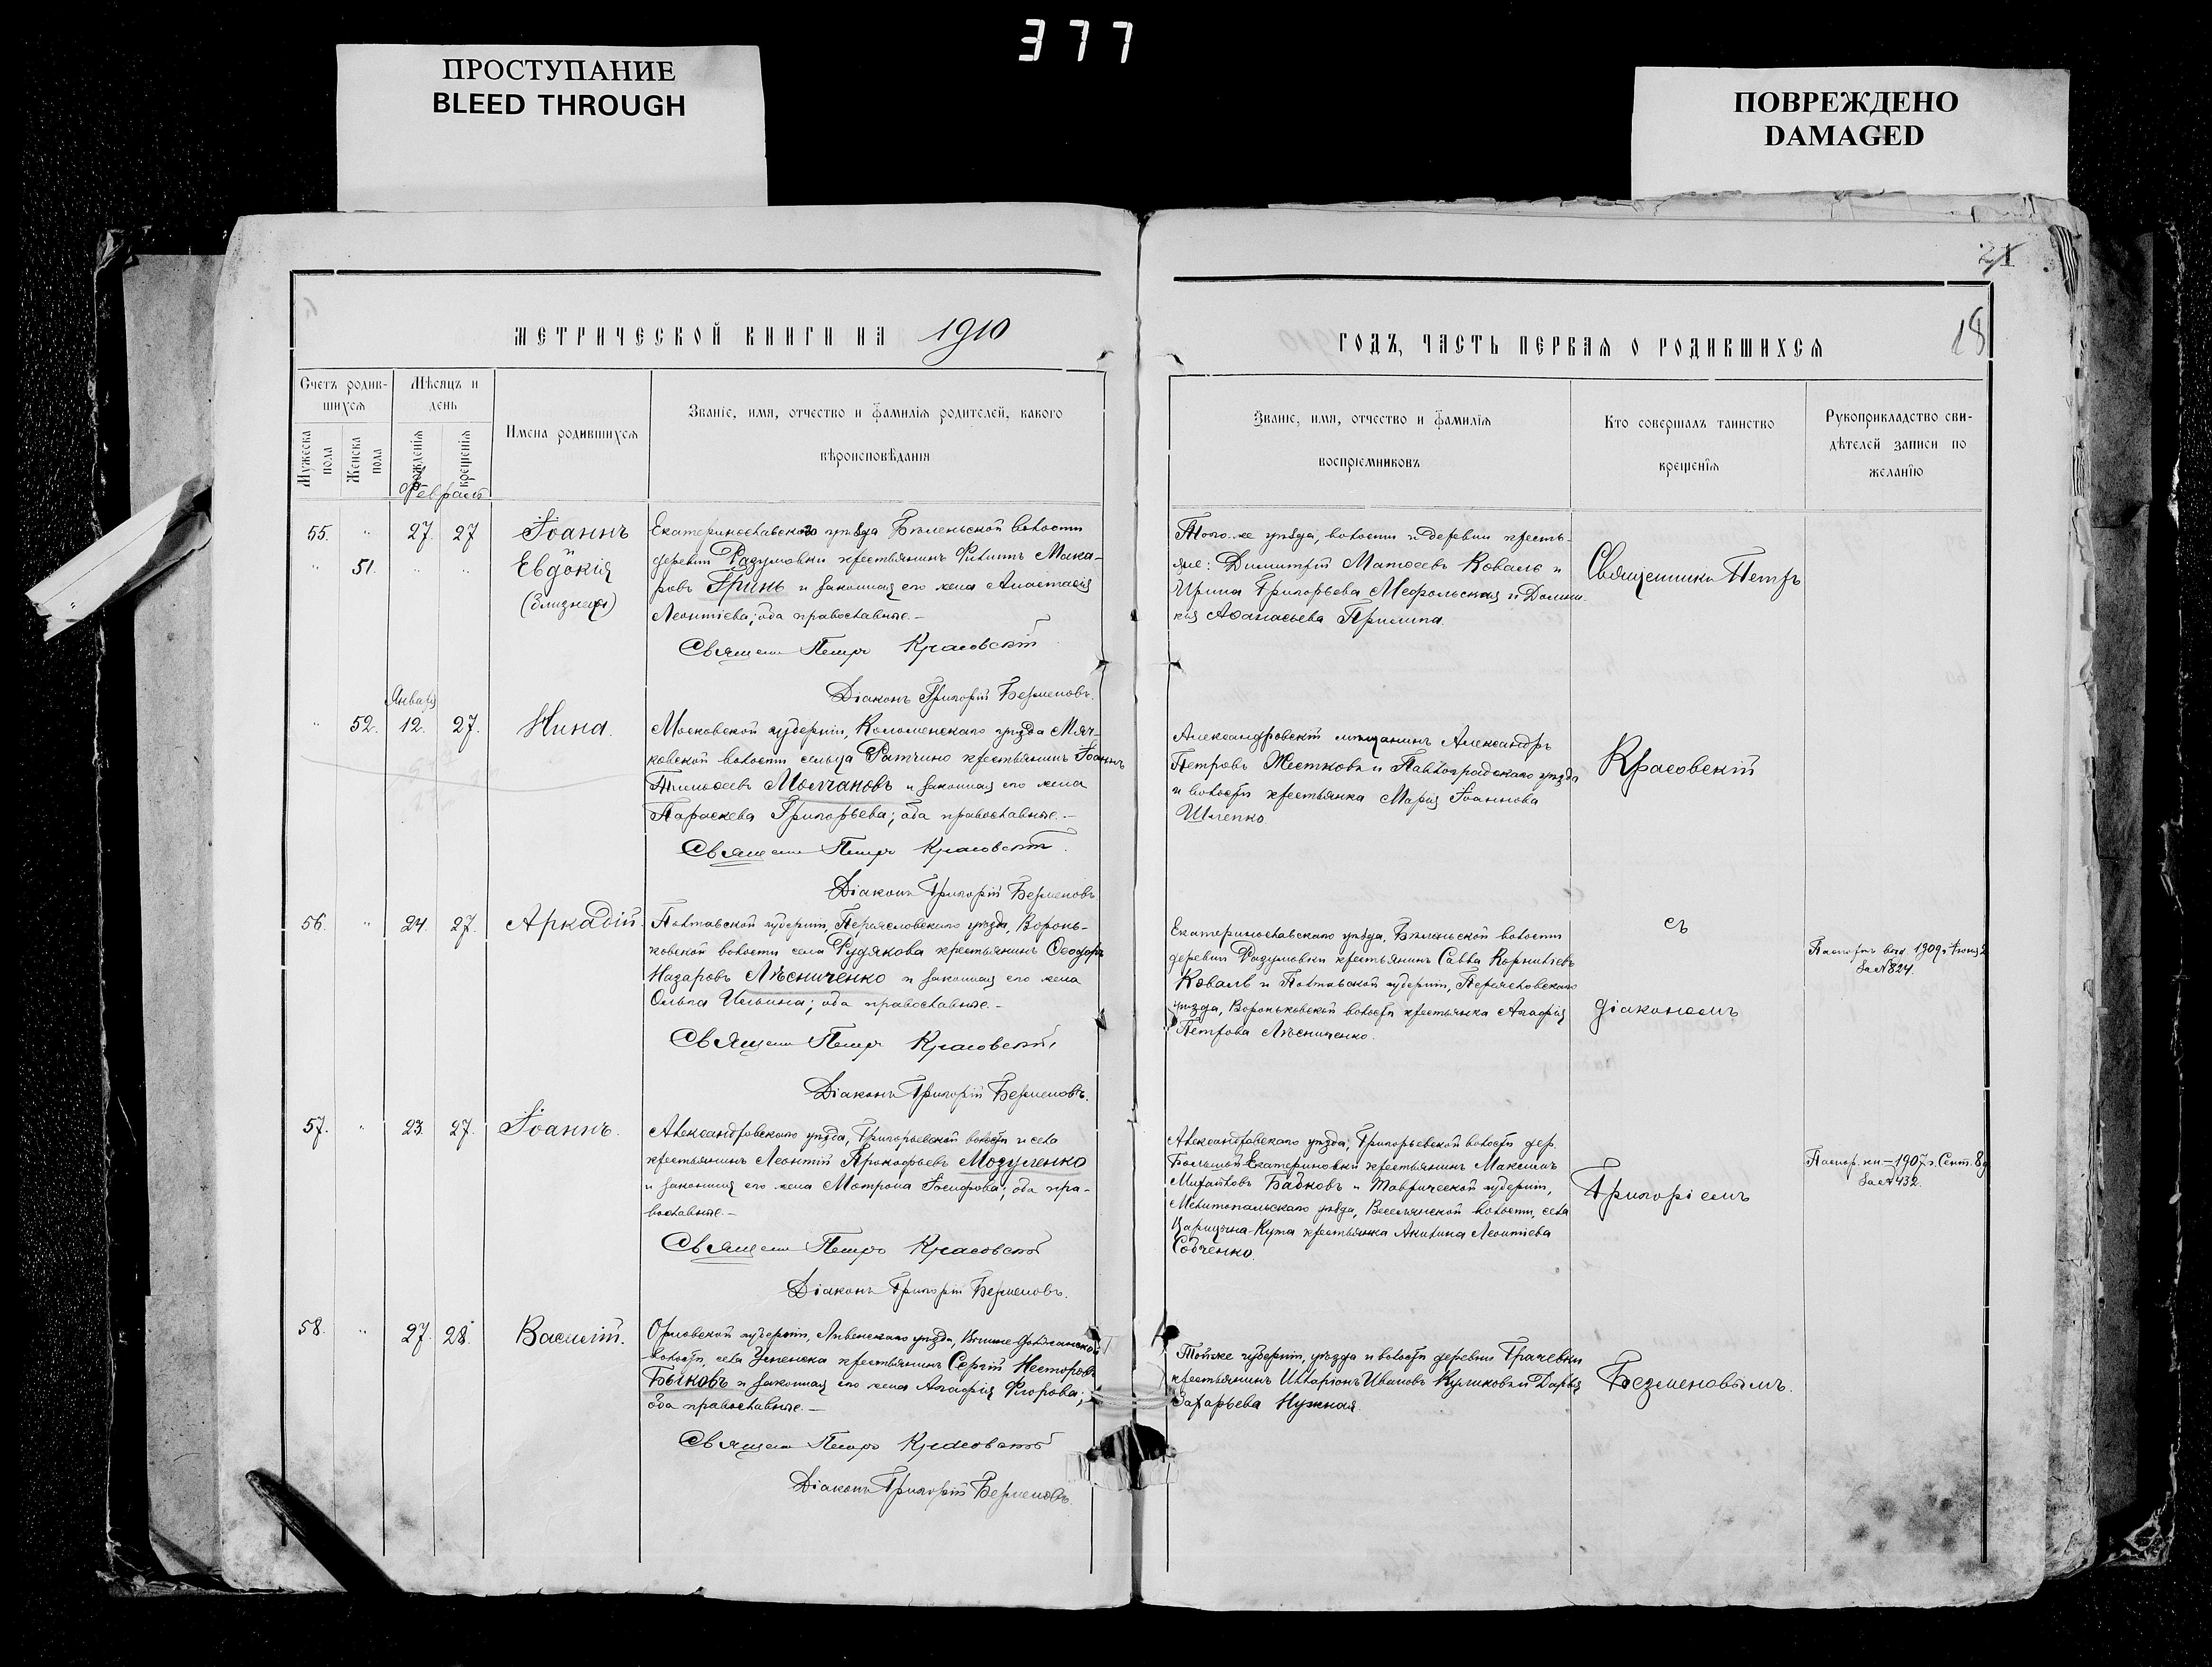 377
ПРОСТУПАНИЕ
BLEED THROUGH
ПОВРЕЖДЕНО
DAMAGED
21
18
МЕТРИЧЕСКОЙ КНИГИ НА 1910
ГОДЪ, ЧАСТЬ ПЕРВАЯ О РОДИВШИХСЯ
Счетъ родив-
шихся
Мужеска
пола
Женска
пола
Мѣсяцъ и
день
рожденія
крещенія
Имена родившихся
Званіе, имя, отчество и фамилія родителей, какого
вѣроисповѣданія
Званіе, имя, отчество и фамилія
воспріемниковъ
Кто совершалъ таинство
крещенія
Рукоприкладство сви-
дѣтелей записи по
желанію
Февраль
55. " 27. 27 Іоаннъ
" 51. " " Евдокія
(близнецы)
Екатеринославскаго уѣзда Бѣленьской волости
деревни Разумовки крестьянинъ Филиппъ Мака-
ровъ Гринь и законная его жена Анастасія
Леонтіева; оба православные.-
Священ Петръ Красовскій
Діаконъ Григорій Безменовъ.
Того-же уѣзда, волости и деревни кресть-
яне: Димитрій Матѳеевъ Коваль и
Ирина Григорьева и Домни-
кія Аѳанасьева Прилипа.
Священникъ Петръ
Января
" 52. 12. 27. Нина.
Московской губерніи, Коломенскаго уѣзда Мяч-
ковской волости сельца Ратчино крестьянинъ Іоаннъ
Тимоѳеевъ Молчановъ и законная его жена
Параскева Григорьева; оба православные.-
Священ Петръ Красовскій.
Діаконъ Григорій Безменовъ
Александровскій мѣщанинъ Александръ
Петровъ Жестковъ и Павлоградскаго уѣзда
и волости крестьянка Марія Іоаннова
Шлепко.
Красовскій
56. " 24. 27. Аркадій.
Полтавской губерніи, Переяславскаго уѣзда, Воронь-
ковской волости села Рудякова крестьянинъ Ѳеодоръ
Назаровъ Лѣсниченко и законная его жена
Ольга Ильина; оба православные.-
Священ Петръ Красовскій,
Діаконъ Григорій Безменовъ.
Екатеринославскаго уѣзда, Бѣленьской волости
деревни Разумовки крестьянинъ Савва Корниліевъ
Коваль и Полтавской губерніи, Переяславскаго
уѣзда, Вороньковской волости крестьянка Агафія
Петрова Лѣсниченко.
съ
діакономъ
Паспортъ выд. 1909 г. Іюня 2
За № 824.
57. " 23. 27. Іоаннъ.
Александровскаго уѣзда, Григорьевской волости и села
крестьянинъ Леонтій Прокофьевъ Мозуленко
и законная его жена Матрона Іосифова; оба пра-
вославные.-
Священ Петръ Красовскій
Діаконъ Григорій Безменовъ.
Александровскаго уѣзда, Григорьевской волости дер.
Большой Екатериновки крестьянинъ Максимъ
Михайловъ Бабковъ и Таврической губерніи,
Мелитопольскаго уѣзда, Веселянской волости, села
Царицына-Кута крестьянка Акилина Леонтіева
Собченко.
Григоріемъ
Паспор. кн-1907 г. Сент. 8
За № 432.
58. " 27. 28. Василій.
Орловской губерніи, Ливенскаго уѣзда,
волости, села Успенска крестьянинъ Сергій Несторовъ
Быковъ и законная его жена Агафія Флорова;
оба православные.-
Священ Петръ Красовскій
Діаконъ Григорій Безменовъ.
Той-же губерніи, уѣзда и волости деревни Грачевки
крестьянинъ Иларіонъ Ивановъ Куликовъ и Дарья
Захарьева Нужная.
Безменовымъ.